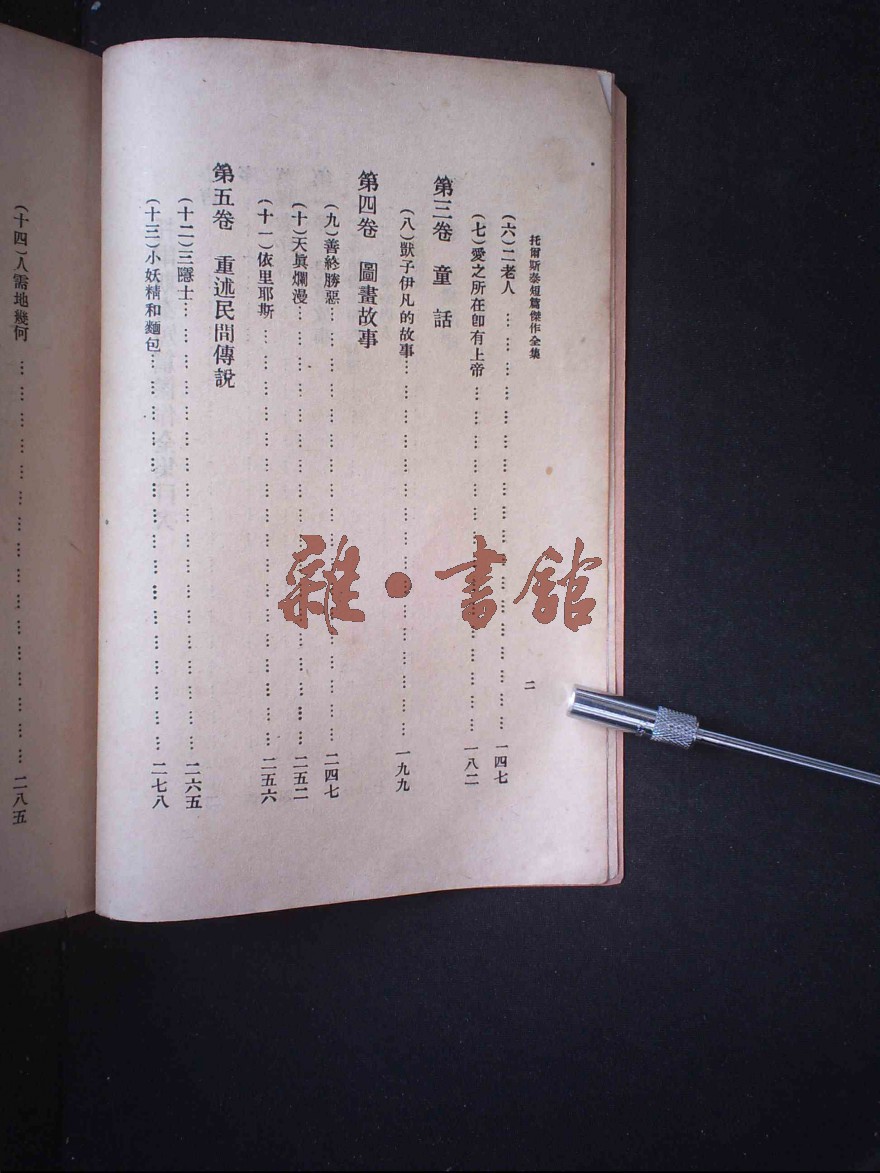 托爾斯泰短篇傑作全集
二
(六)二老人 ………………………………………… 一四七
(七)愛之所在卽有上帝 ………………………………………… 一八二
第三卷 童話
(八)獃子伊凡的故事 ………………………………………… 一九九
第四卷 圖畫故事
(九)善終勝惡 ………………………………………… 二四七
(十)天眞爛漫 ………………………………………… 二五二
(十一)依里耶斯 ………………………………………… 二五六
第五卷 重述民間傳說
(十二)三隱士 ………………………………………… 二六五
(十三)小妖精和麵包 ………………………………………… 二七八
(十四)人需地幾何 ………………………………………… 二八五
雜·書館